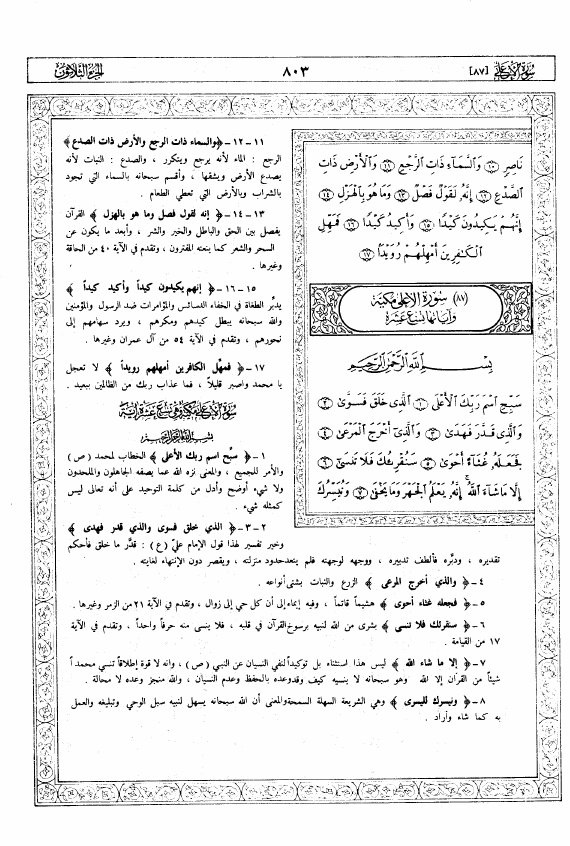 سورة الأعلى [٨٧]
٨٠٣
الجزء الثلاثون
نَاصِرٍ ۝١٠ وَالسَّمَاءِ ذَاتِ الرَّجْعِ ۝١١ وَالْأَرْضِ ذَاتِ
الصَّدْعِ ۝١٢ إِنَّهُ لَقَوْلٌ فَصْلٌ ۝١٣ وَمَا هُوَ بِالْهَزْلِ ۝١٤
إِنَّهُمْ يَكِيدُونَ كَيْدًا ۝١٥ وَأَكِيدُ كَيْدًا ۝١٦ فَمَهِّلِ
الْكَافِرِينَ أَمْهِلْهُمْ رُوَيْدًا ۝١٧
(٨٧) سورة الأعلى مكية
وآياتها تسع عشرة
بسم الله الرحمن الرحيم
سَبِّحِ اسْمَ رَبِّكَ الْأَعْلَى ۝١ الَّذِي خَلَقَ فَسَوَّى ۝٢
وَالَّذِي قَدَّرَ فَهَدَى ۝٣ وَالَّذِي أَخْرَجَ الْمَرْعَى ۝٤
فَجَعَلَهُ غُثَاءً أَحْوَى ۝٥ سَنُقْرِئُكَ فَلَا تَنسَى ۝٦
إِلَّا مَا شَاءَ اللَّهُ إِنَّهُ يَعْلَمُ الْجَهْرَ وَمَا يَخْفَى ۝٧ وَنُيَسِّرُكَ
١١ – ١٢ – ﴿والسماء ذات الرجع والأرض ذات الصدع﴾
الرجع : الماء لأنه يرجع ويتكرر ، والصدع : النبات لأنه
يصدع الأرض ويشقها ، وأقسم سبحانه بالسماء التي تجود
بالشراب وبالأرض التي تعطي الطعام .
١٣ – ١٤ – ﴿ إنه لقول فصل وما هو بالهزل ﴾ القرآن
يفصل بين الحق والباطل والخير والشر ، وأبعد ما يكون عن
السحر والشعر كما ينعته المفترون ، وتقدم في الآية ٤٠ من الحاقة
وغيرها .
١٥ – ١٦ – ﴿ إنهم يكيدون كيداً وأكيد كيداً ﴾
يدبِّر الطغاة في الخفاء الدسائس والمؤامرات ضد الرسول والمؤمنين
والله سبحانه يبطل كيدهم ومكرهم ، ويرد سهامهم إلى
نحورهم ، وتقدم في الآية ٥٤ من آل عمران وغيرها .
١٧ – ﴿ فمهِّل الكافرين أمهلهم رويداً ﴾ لا تعجل
يا محمد واصبر قليلاً ، فما عذاب ربك من الظالمين ببعيد .
سورة الأعلى مكية وهي تسع عشرة آية
بسم الله الرحمن الرحيم
١ – ﴿ سبِّح اسم ربك الأعلى ﴾ الخطاب لمحمد (ص)
والأمر للجميع ، والمعنى نزه الله عما يصفه الجاهلون والملحدون
ولا شيء أوضح وأدل من كلمة التوحيد على أنه تعالى ليس
كمثله شيء .
٢ – ٣ – ﴿ الذي خلق فسوى والذي قدر فهدى ﴾
وخير تفسير لهذا قول الإمام عليّ (ع) : قدَّر ما خلق فأحكم
تقديره ، ودبَّره فألطف تدبيره ، ووجهه لوجهته فلم يتعد حدود منزلته ، ويقصر دون الإنتهاء لغايته .
٤ – ﴿ والذي أخرج المرعى ﴾ الزرع والنبات بشتى أنواعه .
٥ – ﴿ فجعله غثاء أحوى ﴾ هشيماً قاتماً ، وفيه إيماء إلى أن كل حي إلى زوال ، وتقدم في الآية ٢١ من الزمر وغيرها .
٦ – ﴿ سنقرئك فلا تنسى ﴾ بشرى من الله لنبيه برسوخ القرآن في قلبه ، فلا ينسى منه حرفاً واحداً ، وتقدم في الآية
١٧ من القيامة .
٧ – ﴿ إلا ما شاء الله ﴾ ليس هذا استثناء بل توكيداً لنفي النسيان عن النبي (ص) ، وانه لا قوة إطلاقاً تنسي محمداً
شيئاً من القرآن إلا الله وهو سبحانه لا ينسيه كيف وقد وعده بالحفظ وعدم النسيان ، والله منجز وعده لا محالة .
٨ – ﴿ ونيسرك لليسرى ﴾ وهي الشريعة السهلة السمحة والمعنى أن الله سبحانه يسهل لنبيه سبل الوحي وتبليغه والعمل
به كما شاء وأراد .